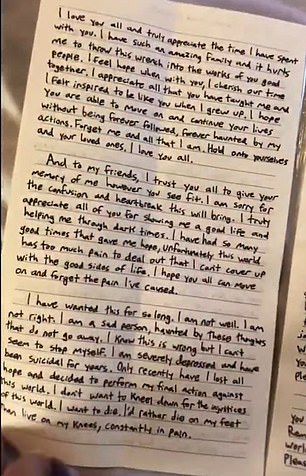 I love you all and truly appreciate the time I have spent
with you. I have such an amazing family and it hurts
me to throw this wrench into the works of you good
people. I feel hope when with you, I cherish our time
together. I appreciate all that you have taught me and
I felt inspired to be like you when I grew up. I hope
you are able to move on and continue your lives
without being forever followed, forever haunted by my
actions. Forget me and all that I am. Hold onto yourselves
and your loved ones. I love you all.
And to my friends, I trust you all to give your
memory of me however you see fit. I am sorry for
the confusion and heartbreak this will bring. I truly
appreciate all of you for showing me a good life and
helping me through dark times. I have had so many
good times that gave me hope, Unfortunately this world
has too much pain to deal out that I can't cover up
with the good sides of life. I hope you all can move
on and forget the pain I've caused.
I have wanted this for so long. I am not well. I am
not right. I am a sad person, haunted by these thoughts
that do not go away. I know this is wrong but I can't
seem to stop myself. I am severely depressed and have
been suicidal for years. Only recently have I lost all
hope and decided to perform my final action against
this world. I don't want to kneel down for the injustices
of this world. I want to die. I'd rather die on my feet
than live on my knees, constantly in pain.
You
Rem
worl
Pleas